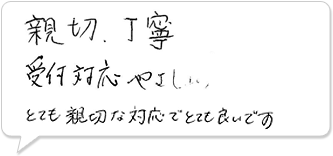 親切、丁寧
受付対応やさしい
とても親切な対応でとても良いです